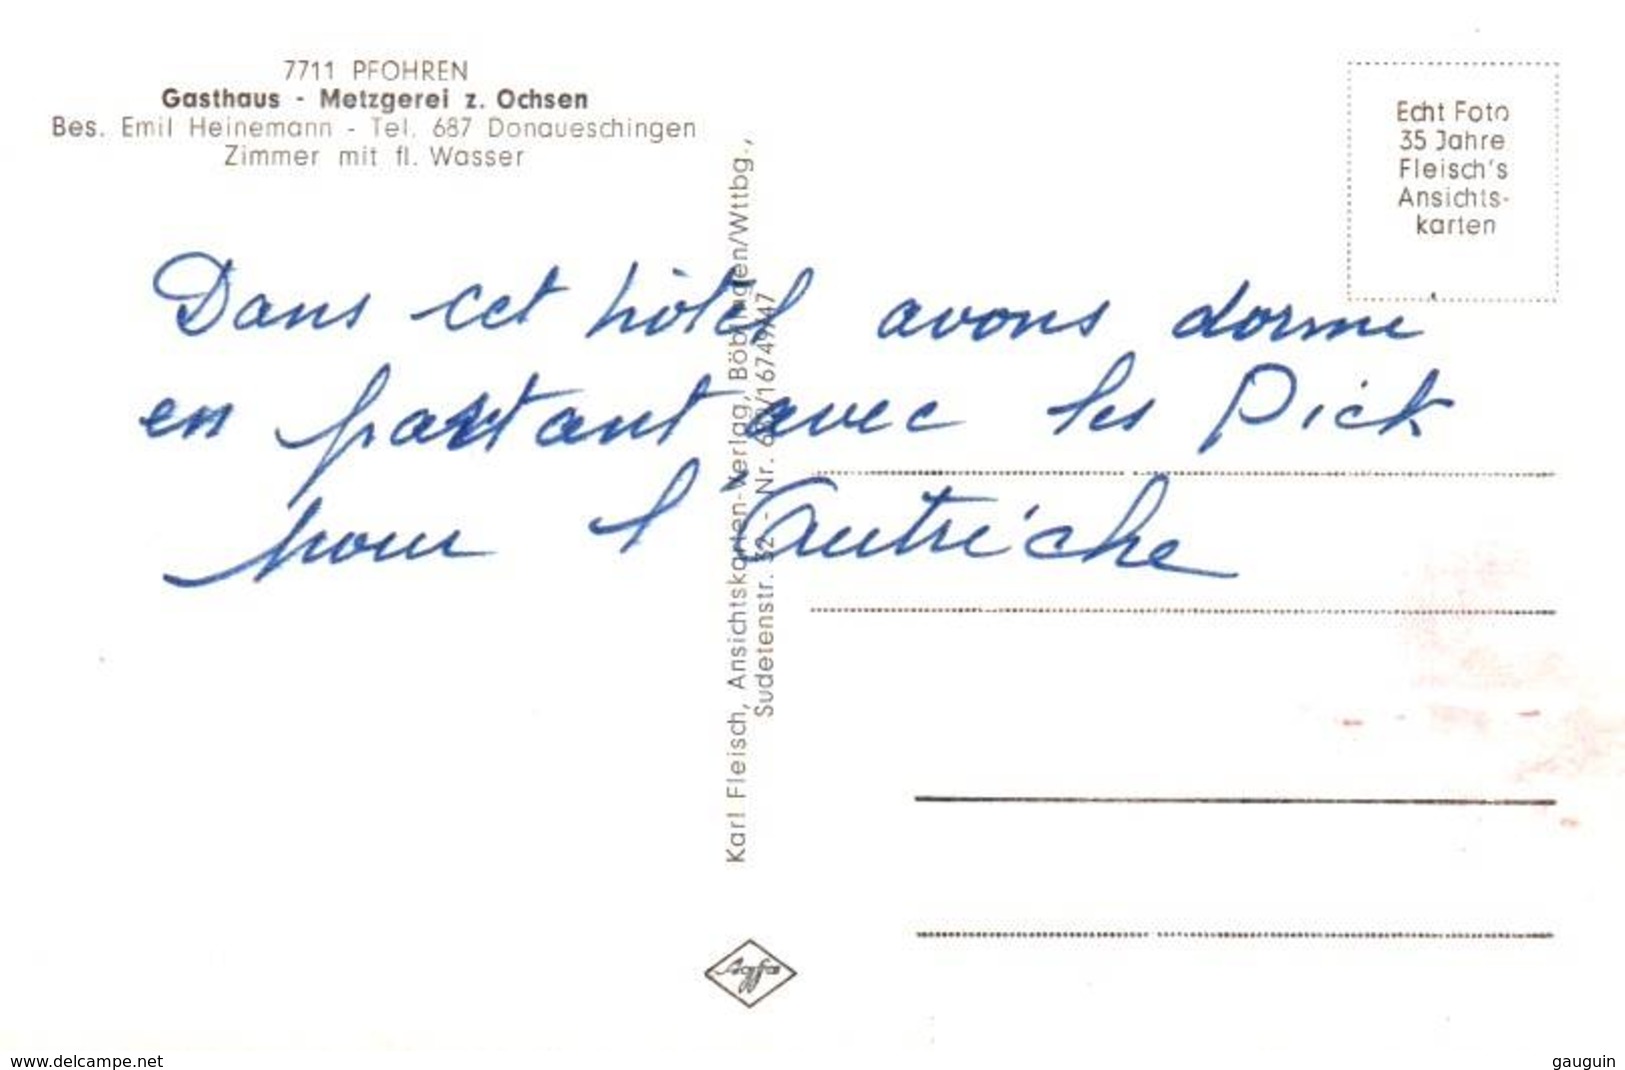 7711 PFOHREN
Gasthaus - Metzgerei z. Ochsen
Bes. Emil Heinemann - Tel. 687 Donaueschingen
Zimmer mit fl. Wasser
Echt Foto
35 Jahre
Fleisch's
Ansichts-
karten
Dans cet hôtel avons dormi
en partant avec les Pick
pour l'Autriche
Karl Fleisch, Ansichtskarten-Verlag, Böblingen/Wttbg.,
Sudetenstr. 32 - Nr.
Agfa
www.delcampe.net
gauguin